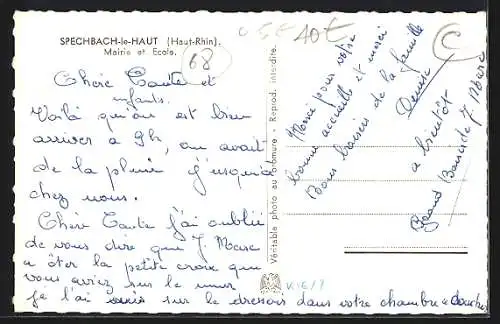 SPECHBACH-le-HAUT (Haut-Rhin).
Mairie et Ecole.
68
10€
C
Chère Tante et
enfants.
Voilà qu'on est bien
arriver a 9h, on avait
de la pluie jusqu'à
chez nous.
Chère Tante j'ai oublié
de vous dire que J. Marc
a ôter la petite croix que
vous aviez sur le mur
je l'ai mis sur le dressoir dans votre chambre a coucher
Véritable photo au bromure - Reprod. interdite.
Merci pour votre
bonne accueille et merci
Bons baisers de la famille
Denise
a bientôt
Grand Baiser de J. Marc